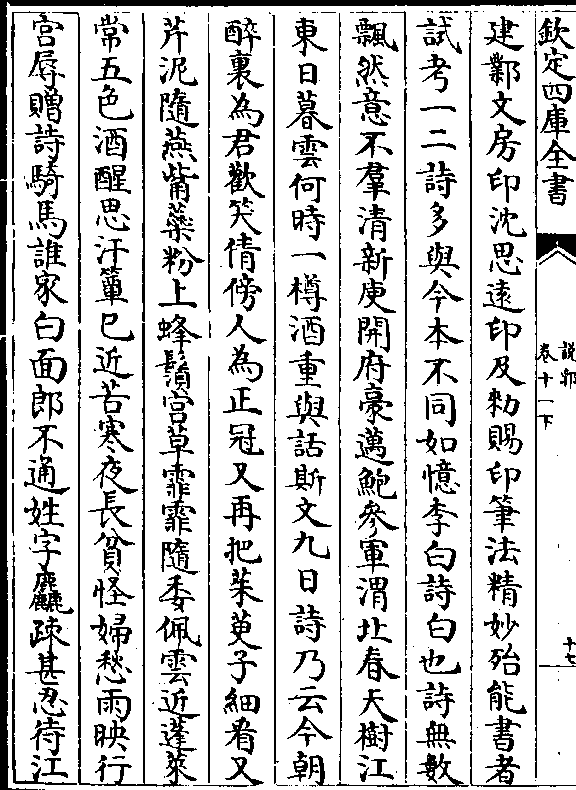 欽定四庫全書
說郛
卷十一下
十七
建鄴文房印沈思遠印及勑賜印筆法精妙殆能書者
試考一二詩多與今本不同如憶李白詩白也詩無數
飄然意不羣清新庾開府豪邁鮑參軍渭北春天樹江
東日暮雲何時一樽酒重與話斯文九日詩乃云今朝
醉裏為君歡笑倩傍人為正冠又再把茱萸子細看又
芹泥隨燕觜蘂粉上蜂鬚宫草霏霏隨委佩雲近蓬萊
常五色酒醒思汗簟已近苦寒夜長貧怪婦愁雨映行
宫辱贈詩騎馬誰家白面郎不通姓字麤疎甚忍待江